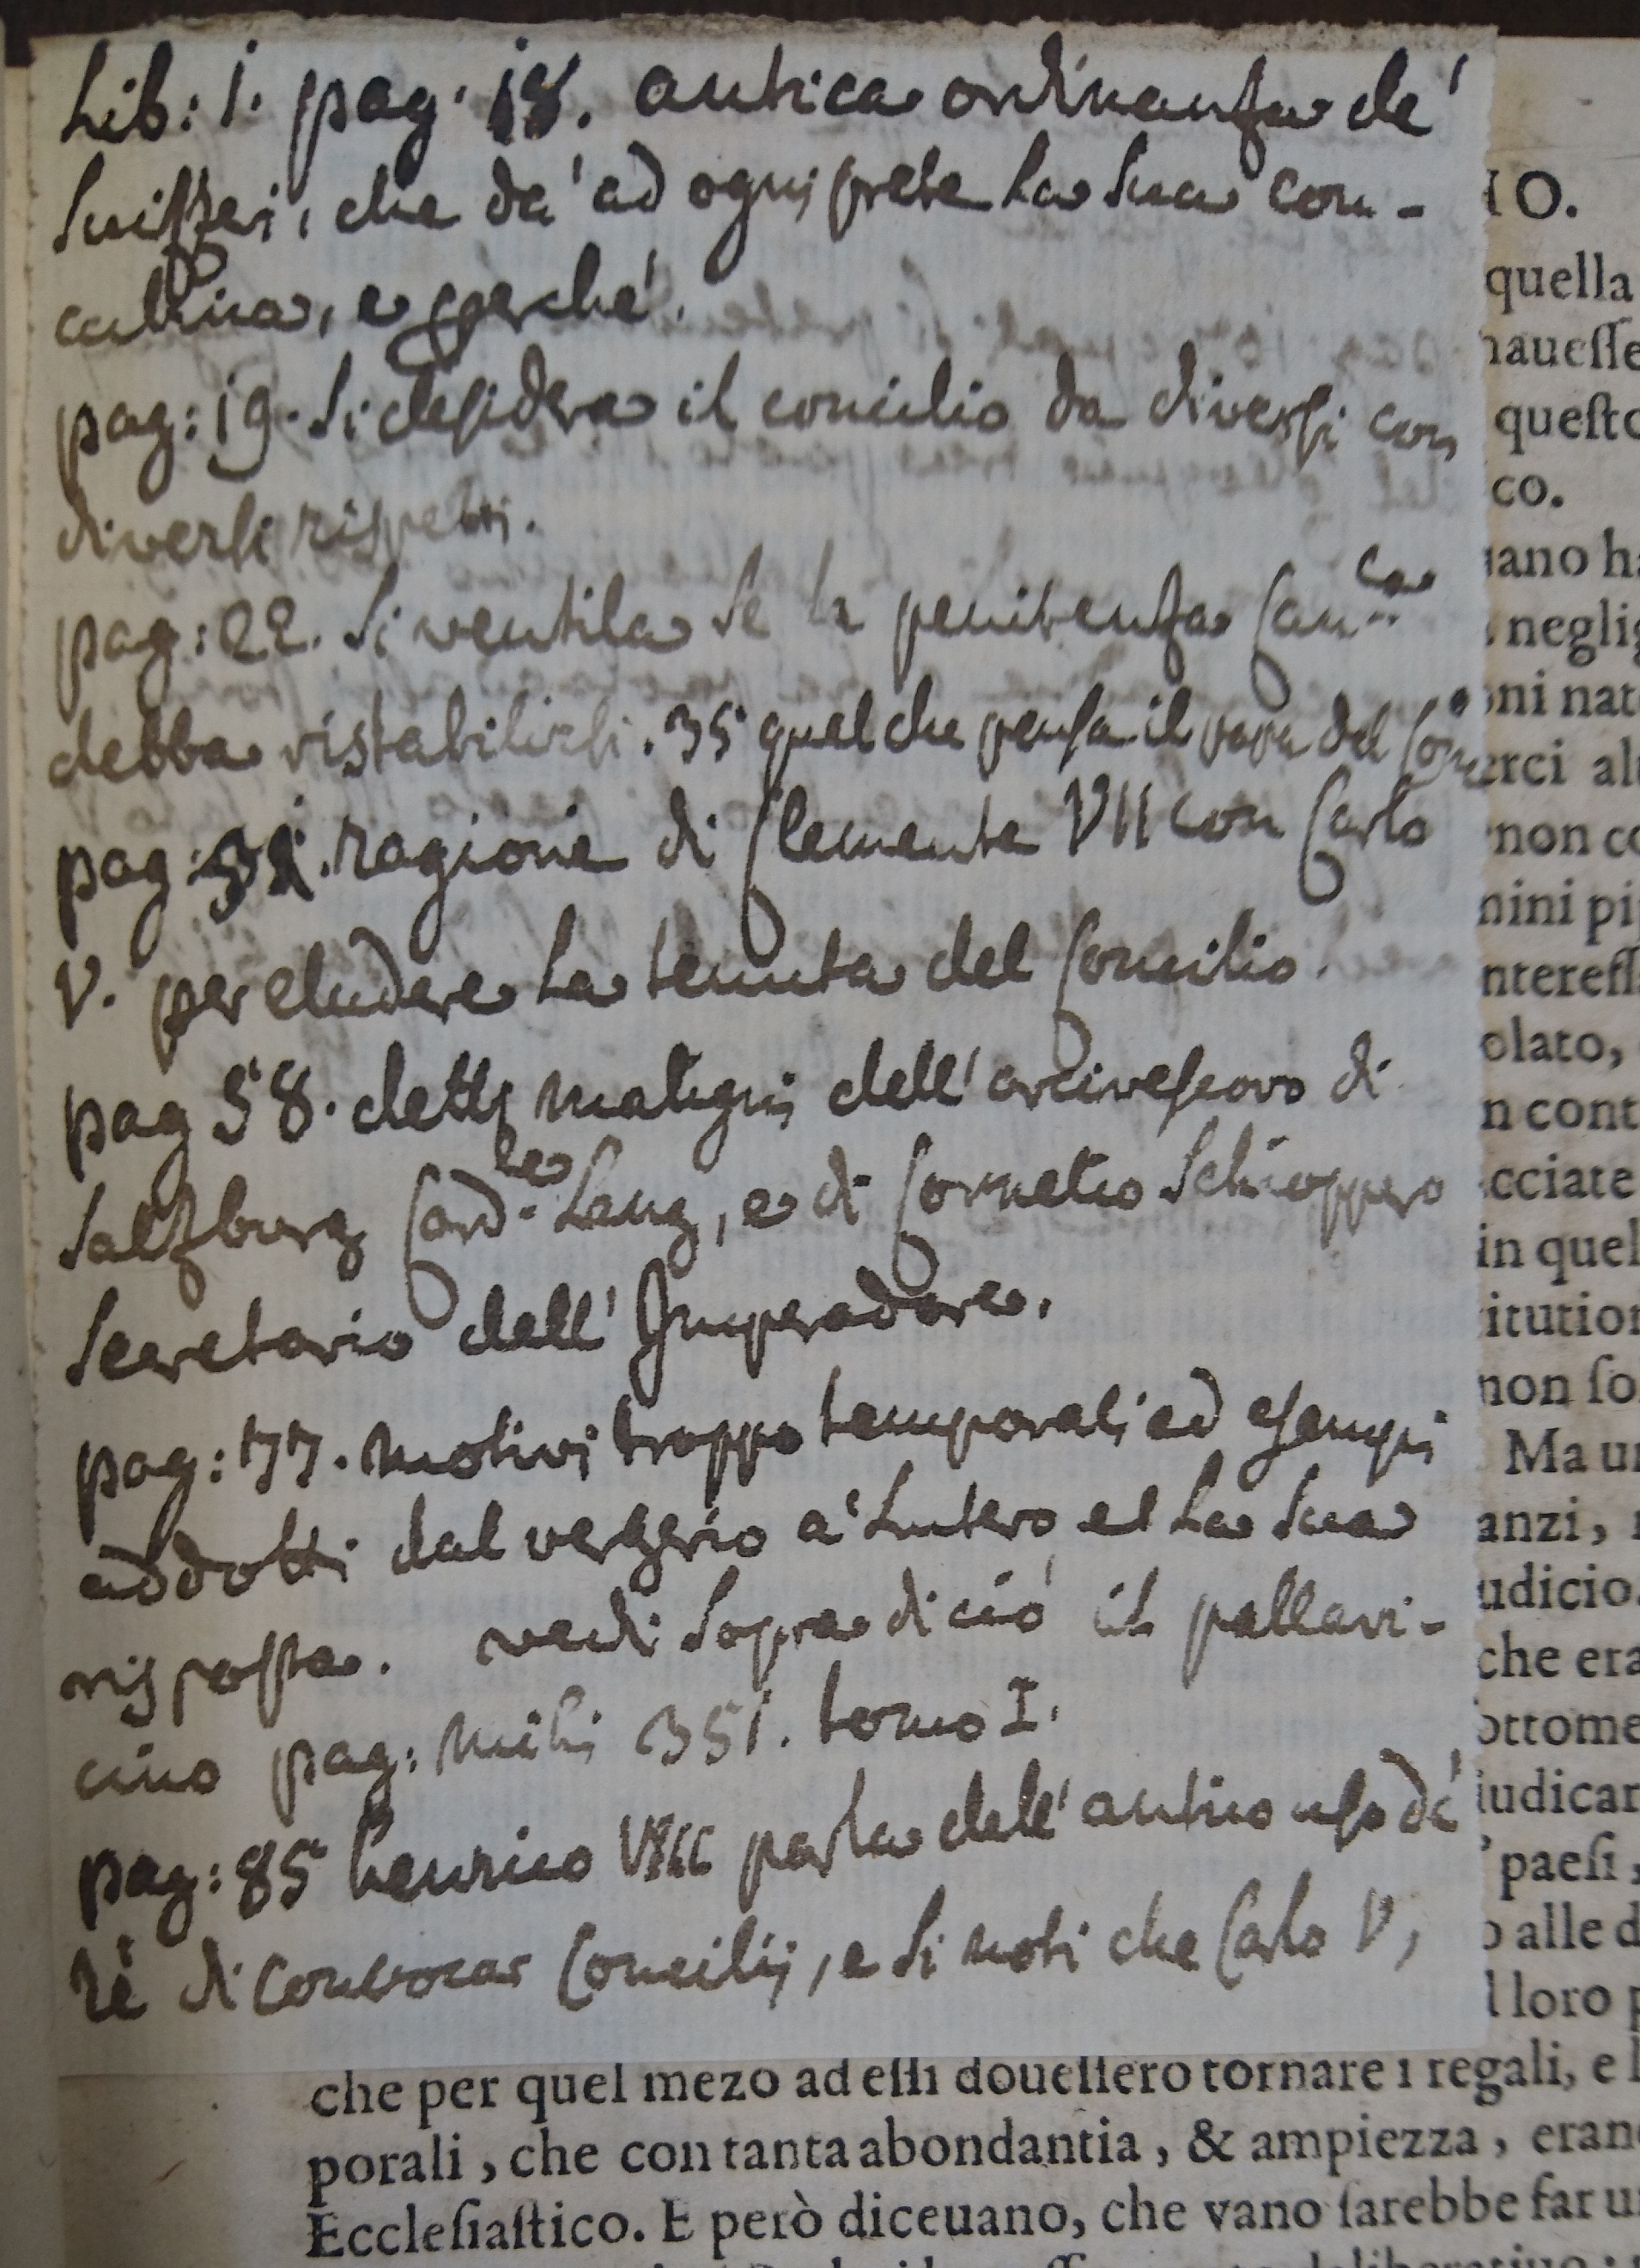 Lib: 1. pag. 18. antica ordinanza de'
Suizzeri, che da' ad ogni prete la sua con-
cubina, e perche'.
pag: 19. si desidera il concilio da diversi con
diversi rispetti.
pag: 22. si ventila se la penitenza Can.ca
debba ristabilirsi. 35 quel che pensa il papa del Con
pag: 31. ragione di Clemente VII con Carlo
V. per eludere la tenuta del Concilio.
pag 58. detti maligni dell' arcivescovo di
Salzburg Card.le Lang, e di Cornelio Schioppero
Secretario dell' Imperadore.
pag: 77. motivi troppo temporali ed esempi
addotti dal vergerio a' Lutero et la sua
risposta. vedi sopra di ciò il pallavi-
cino pag: mihi 351. tomo I.
pag: 85 henrico VIII parla dell' antico uso de'
rè di convocar Concilij, e si noti che Carlo V,
IO.
quella
haueſſe
queſto
co.
iano ha
neglig
oni nat
erci al
non co
nini pi
ntereſſ
olato,
n cont
cciate
in quel
itution
non ſo
Ma un
anzi,
udicio.
che era
ottome
iudicar
paeſi,
o alle d
l loro p
che per quel mezo ad eſſi doueſſero tornare i regali, e l
porali, che con tanta abondantia, & ampiezza, eran
Eccleſiaſtico. E però diceuano, che vano ſarebbe far u